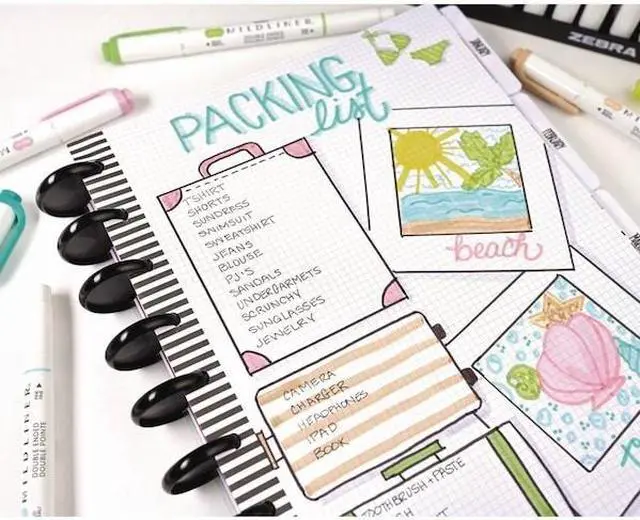 MILDLINER
ZEBRA
JANUARY
FEBRUARY
PACKING
list
TSHIRT
SHORTS
SUNDRESS
SWIMSUIT
SWEATSHIRT
JEANS
BLOUSE
PJ'S
SANDALS
UNDERGARMETS
SCRUNCHY
SUNGLASSES
JEWELRY
beach
CAMERA
CHARGER
HEADPHONES
IPAD
BOOK
TOOTHBRUSH + PASTE
MILDLINER
DOUBLE ENDED
DOUBLE POINTE